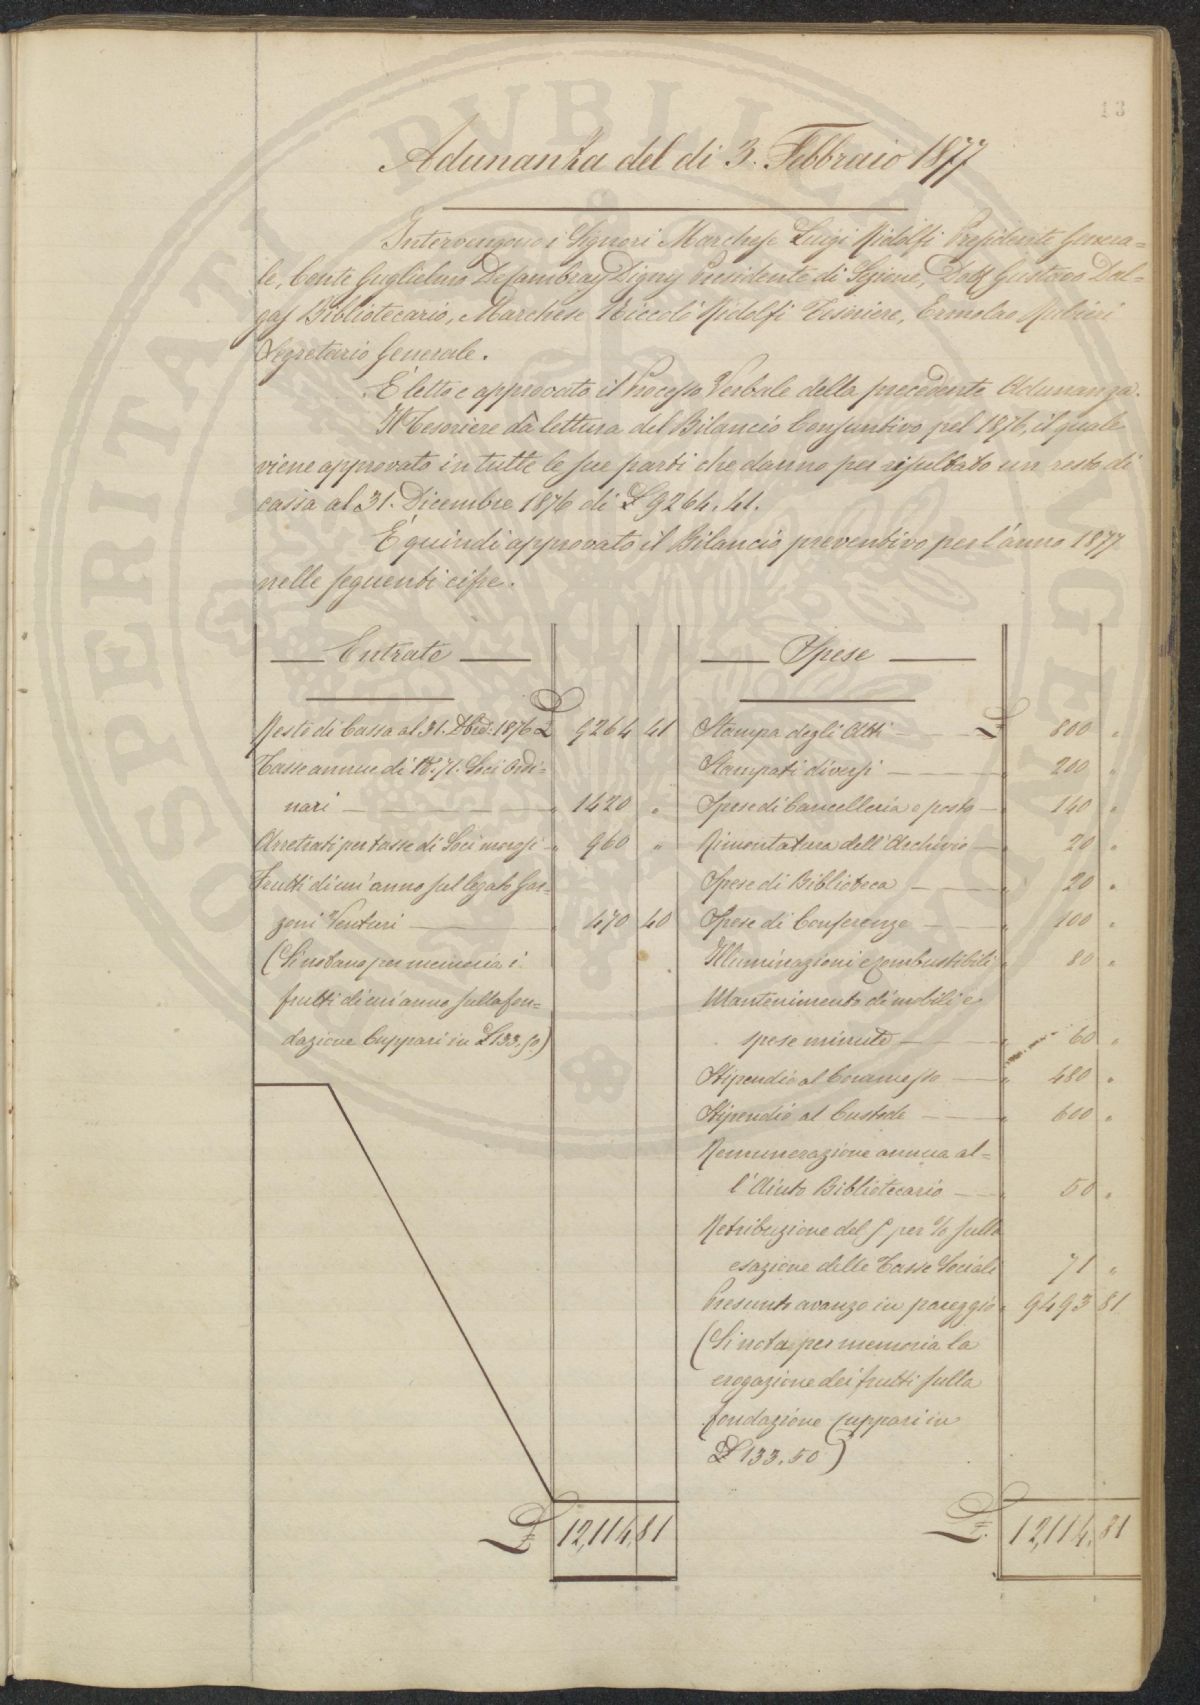 13
Adunanza del di 3. Febbraio 1877
Intervengono i Signori Marchese Luigi Ridolfi Presidente Genera=
le, Conte Guglielmo DeCambray Digny Presidente di Sezione, Dott Gustavo Dal=
gas Bibliotecario, Marchese Niccolò Ridolfi Tesoriere, Ermolao Rubieri
Segretario Generale.
È letto e approvato il Processo Verbale della precedente Adunanza.
Il Tesoriere dà lettura del Bilancio Consuntivo pel 1876, il quale
viene approvato in tutte le sue parti che danno per risultato un resto di
cassa al 31. Dicembre 1876 di £ 9264.41.
È quindi approvato il Bilancio preventivo per l'anno 1877
nelle seguenti cifre.
Entrate
Resto di Cassa al 31. Dbre: 1876 £ 9264 41
Tasse annue di N. 71. Soci Ordi=
nari " 1420 "
Arretrati per tasse di Soci morosi " 960 "
Frutti di un'anno sul legato Gar=
zoni Venturi " 470 40
(Si notano per memoria i
frutti di un'anno sulla fon=
dazione Cuppari in £ 133.50)
£ 12,114.81
Spese
Stampa degli Atti £ 800 "
Stampati diversi 200 "
Spese di Cancelleria e posta 140 "
Rimontatura dell'Archivio 20 "
Spese di Biblioteca " 20 "
Spese di Conferenze " 100 "
Illuminazioni e combustibili " 80 "
Mantenimento di mobili e
spese minute " 60 "
Stipendio al Commesso " 480 "
Stipendio al Custode " 600 "
Remunerazione annua al=
l'Aiuto Bibliotecario " 50 "
Retribuzione del 5 per % sulla
esazione delle Tasse Sociali 71 "
Presunto avanzo in pareggio " 9493 81
(Si nota per memoria la
erogazione dei frutti sulla
fondazione Cuppari in
£ 133.50)
£. 12,114.81